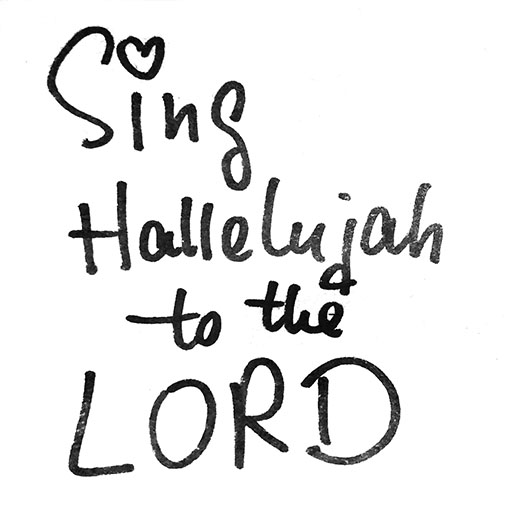 Sing
Hallelujah
to the
LORD